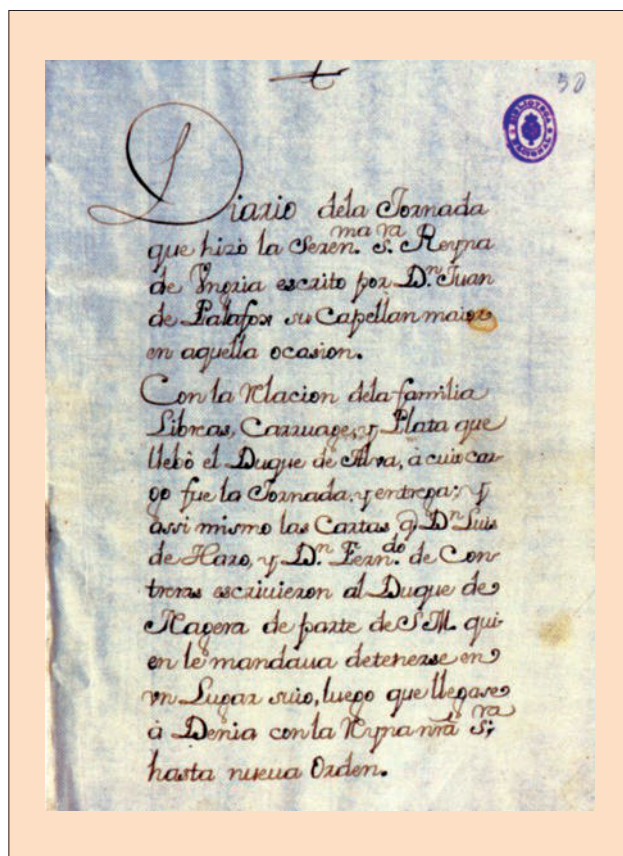 50
BIBLIOTECA
Diario dela Jornada
que hizo la Seren.ma S.ra Reyna
de Vngria escrito por D.n Juan
de Palafox su Capellan maior
en aquella ocasion.
Con la Relacion dela familia
Libreas, Carruage, y Plata que
llebò el Duque de Alva, à cuio car-
go fue la Jornada, y entrega; y
assi mismo las Cartas q D.n Luis
de Haro, y D.n Fern.do de Con-
treras escriuieron al Duque de
Nagera de parte de S.M. qui-
en le mandaua detenerse en
vn Lugar suio, luego que llegase
à Denia con la Reyna nrã S.ra
hasta nueua Orden.